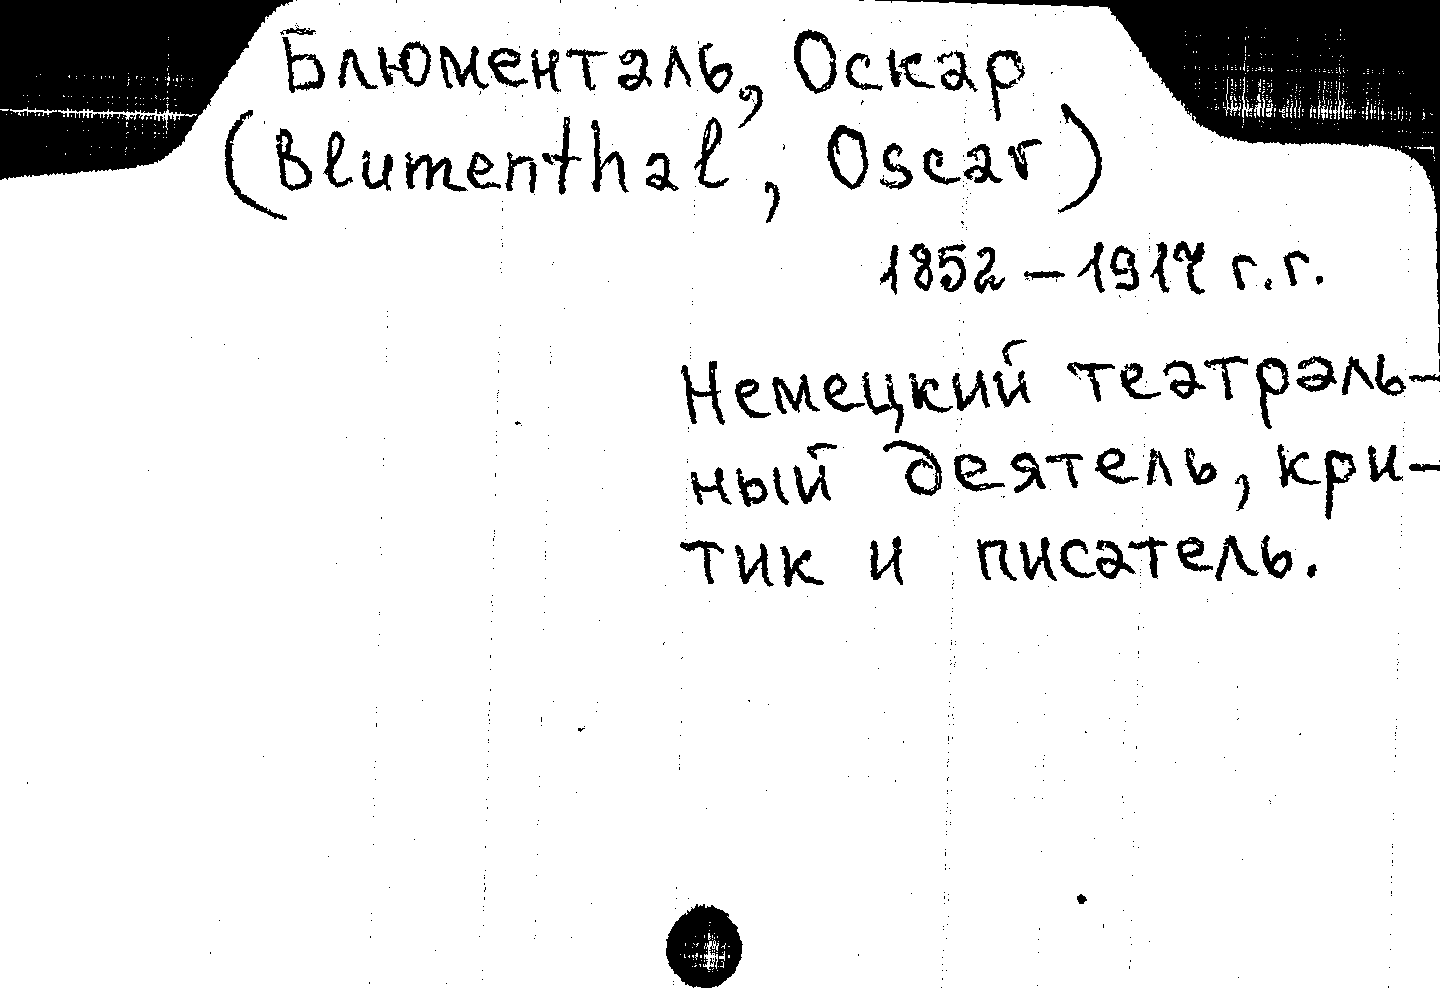 Блюменталь, Оскар
(Blumenthal, Oscar)
1852 – 1917 г.г.
Немецкий театраль-
ный деятель, кри-
тик и писатель.